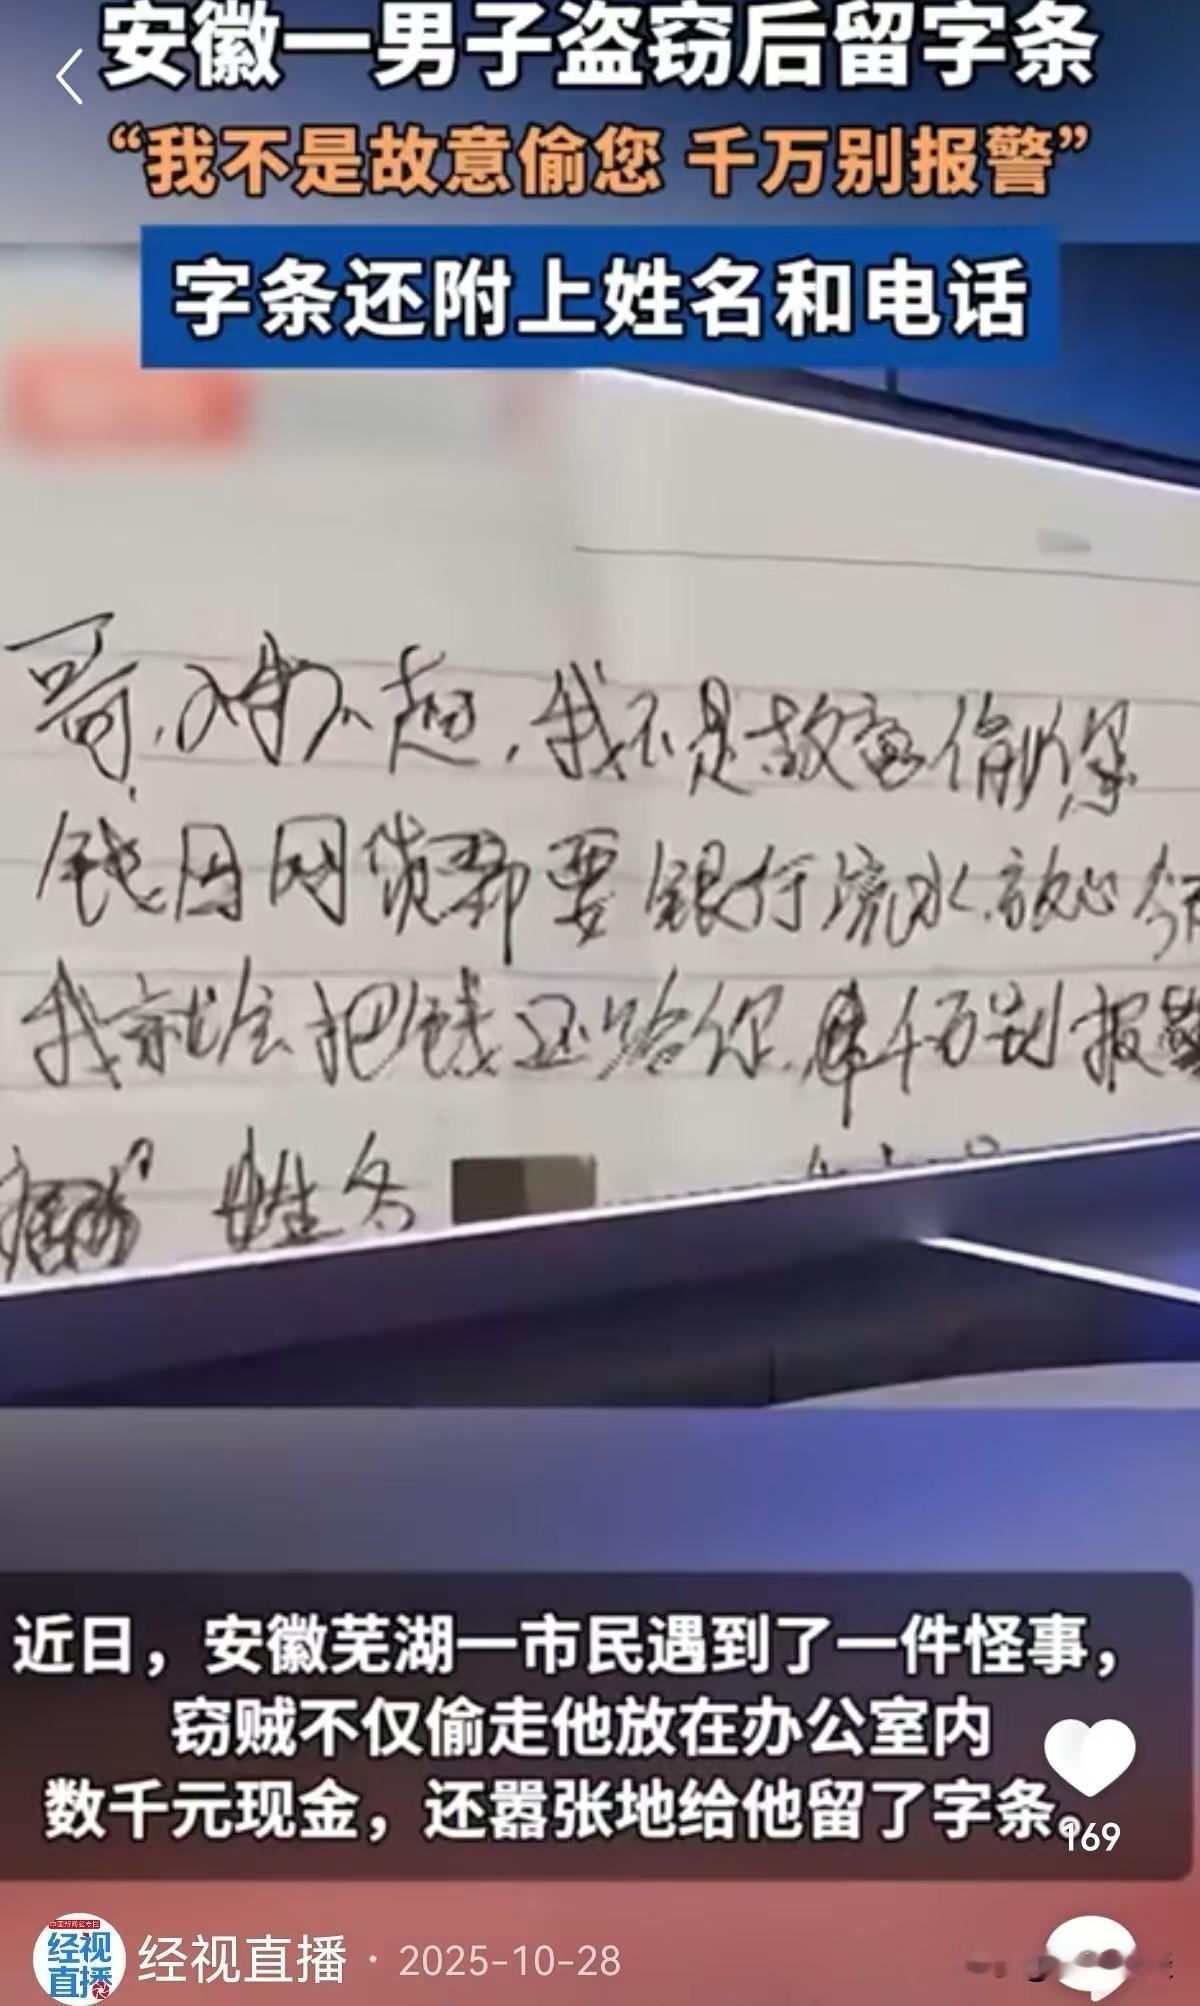 安徽一男子盗窃后留字条
“我不是故意偷您 千万别报警”
字条还附上姓名和电话
哥,对不起,我不是故意偷你
钱因网贷都要银行流水,放心
我就会把钱还给你,千万别报警
姓名
近日，安徽芜湖一市民遇到了一件怪事，
窃贼不仅偷走他放在办公室内
数千元现金，还嚣张地给他留了字条。
169
经视
直播
经视直播 · 2025-10-28